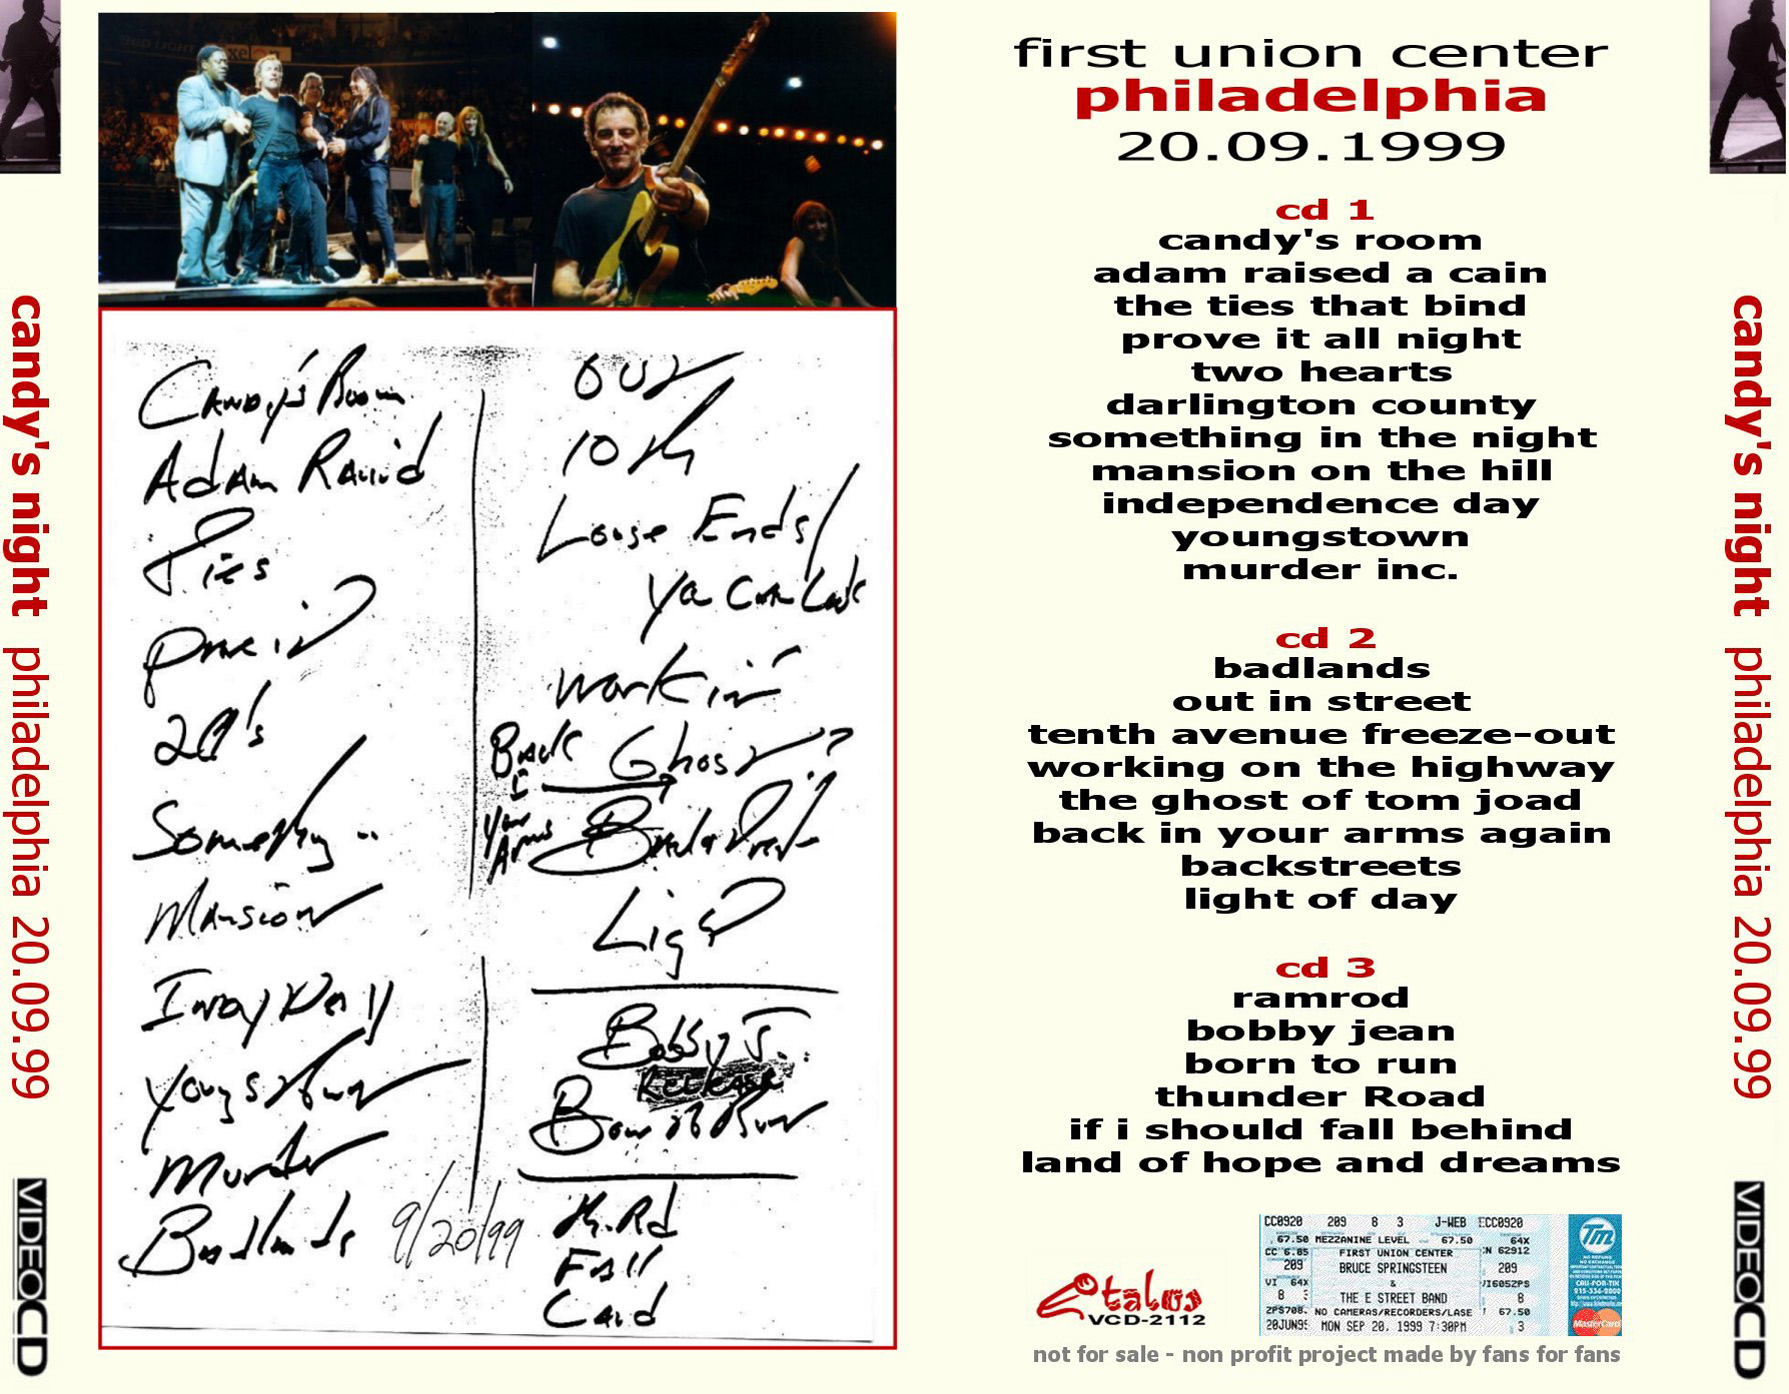 candy's night philadelphia 20.09.99
VIDEOCD
Candy's Room
Adam Raisid
Ties
Prove it
2 H's
Something ..
Mansion
Indy Day
Youngstown
Murder
Badlands
9/20/99
Out
10th
Loose Ends/
Ya Can Look
Workin
Back
Ghost ?
I
Your
Arms
Backstreets
Light
Bobby J.
RELEASE
Born to Run
Th. Rd
Fall
Land
first union center
philadelphia
20.09.1999
cd 1
candy's room
adam raised a cain
the ties that bind
prove it all night
two hearts
darlington county
something in the night
mansion on the hill
independence day
youngstown
murder inc.
cd 2
badlands
out in street
tenth avenue freeze-out
working on the highway
the ghost of tom joad
back in your arms again
backstreets
light of day
cd 3
ramrod
bobby jean
born to run
thunder Road
if i should fall behind
land of hope and dreams
talus
VCD-2112
CC0920 209 8 3 J-WEB ECC0920
67.50 MEZZANINE LEVEL 67.50 64X
CC 6.85 FIRST UNION CENTER CN 62912
209 BRUCE SPRINGSTEEN 209
VI 64X & VI605ZPS
8 3 THE E STREET BAND 8
ZPS708. NO CAMERAS/RECORDERS/LASE 67.50
28JUN99 MON SEP 20, 1999 7:30PM 3
Tm
NO REFUND
NO EXCHANGE
CALL-FOR-TIX
215-336-2000
MasterCard
not for sale - non profit project made by fans for fans
candy's night philadelphia 20.09.99
VIDEOCD